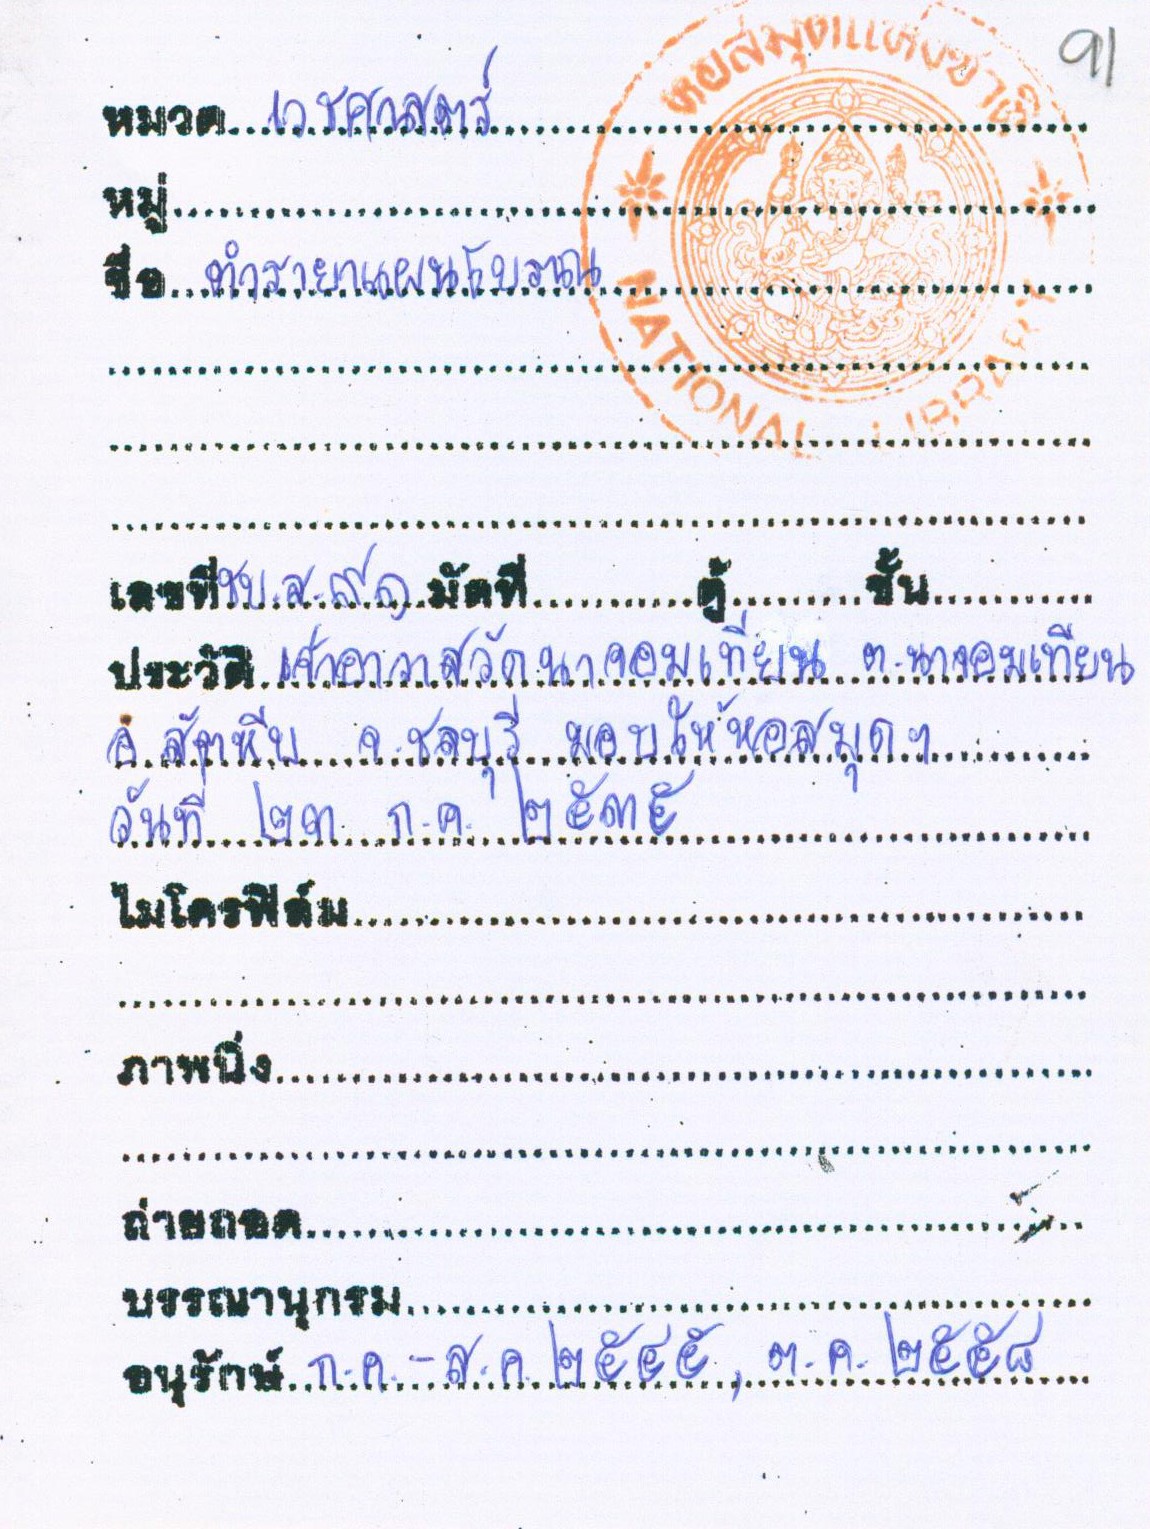 91
หอสมุดแห่งชาติ
NATIONAL LIBRARY
หมวด เวชศาสตร์
หมู่
ชื่อ ตำรายาแผนโบราณ
เลขที่ ชบ.ส.๙๑ มัดที่ ตู้ ชั้น
ประวัติ เจ้าอาวาสวัดนาจอมเทียน ต.นาจอมเทียน
อ.สัตหีบ จ.ชลบุรี มอบให้หอสมุดฯ
วันที่ ๒๓ ก.ค. ๒๕๓๕
ไมโครฟิล์ม
ภาพนิ่ง
ถ่ายถอด
บรรณานุกรม
อนุรักษ์ ก.ค.-ส.ค. ๒๕๔๕, ต.ค. ๒๕๕๘